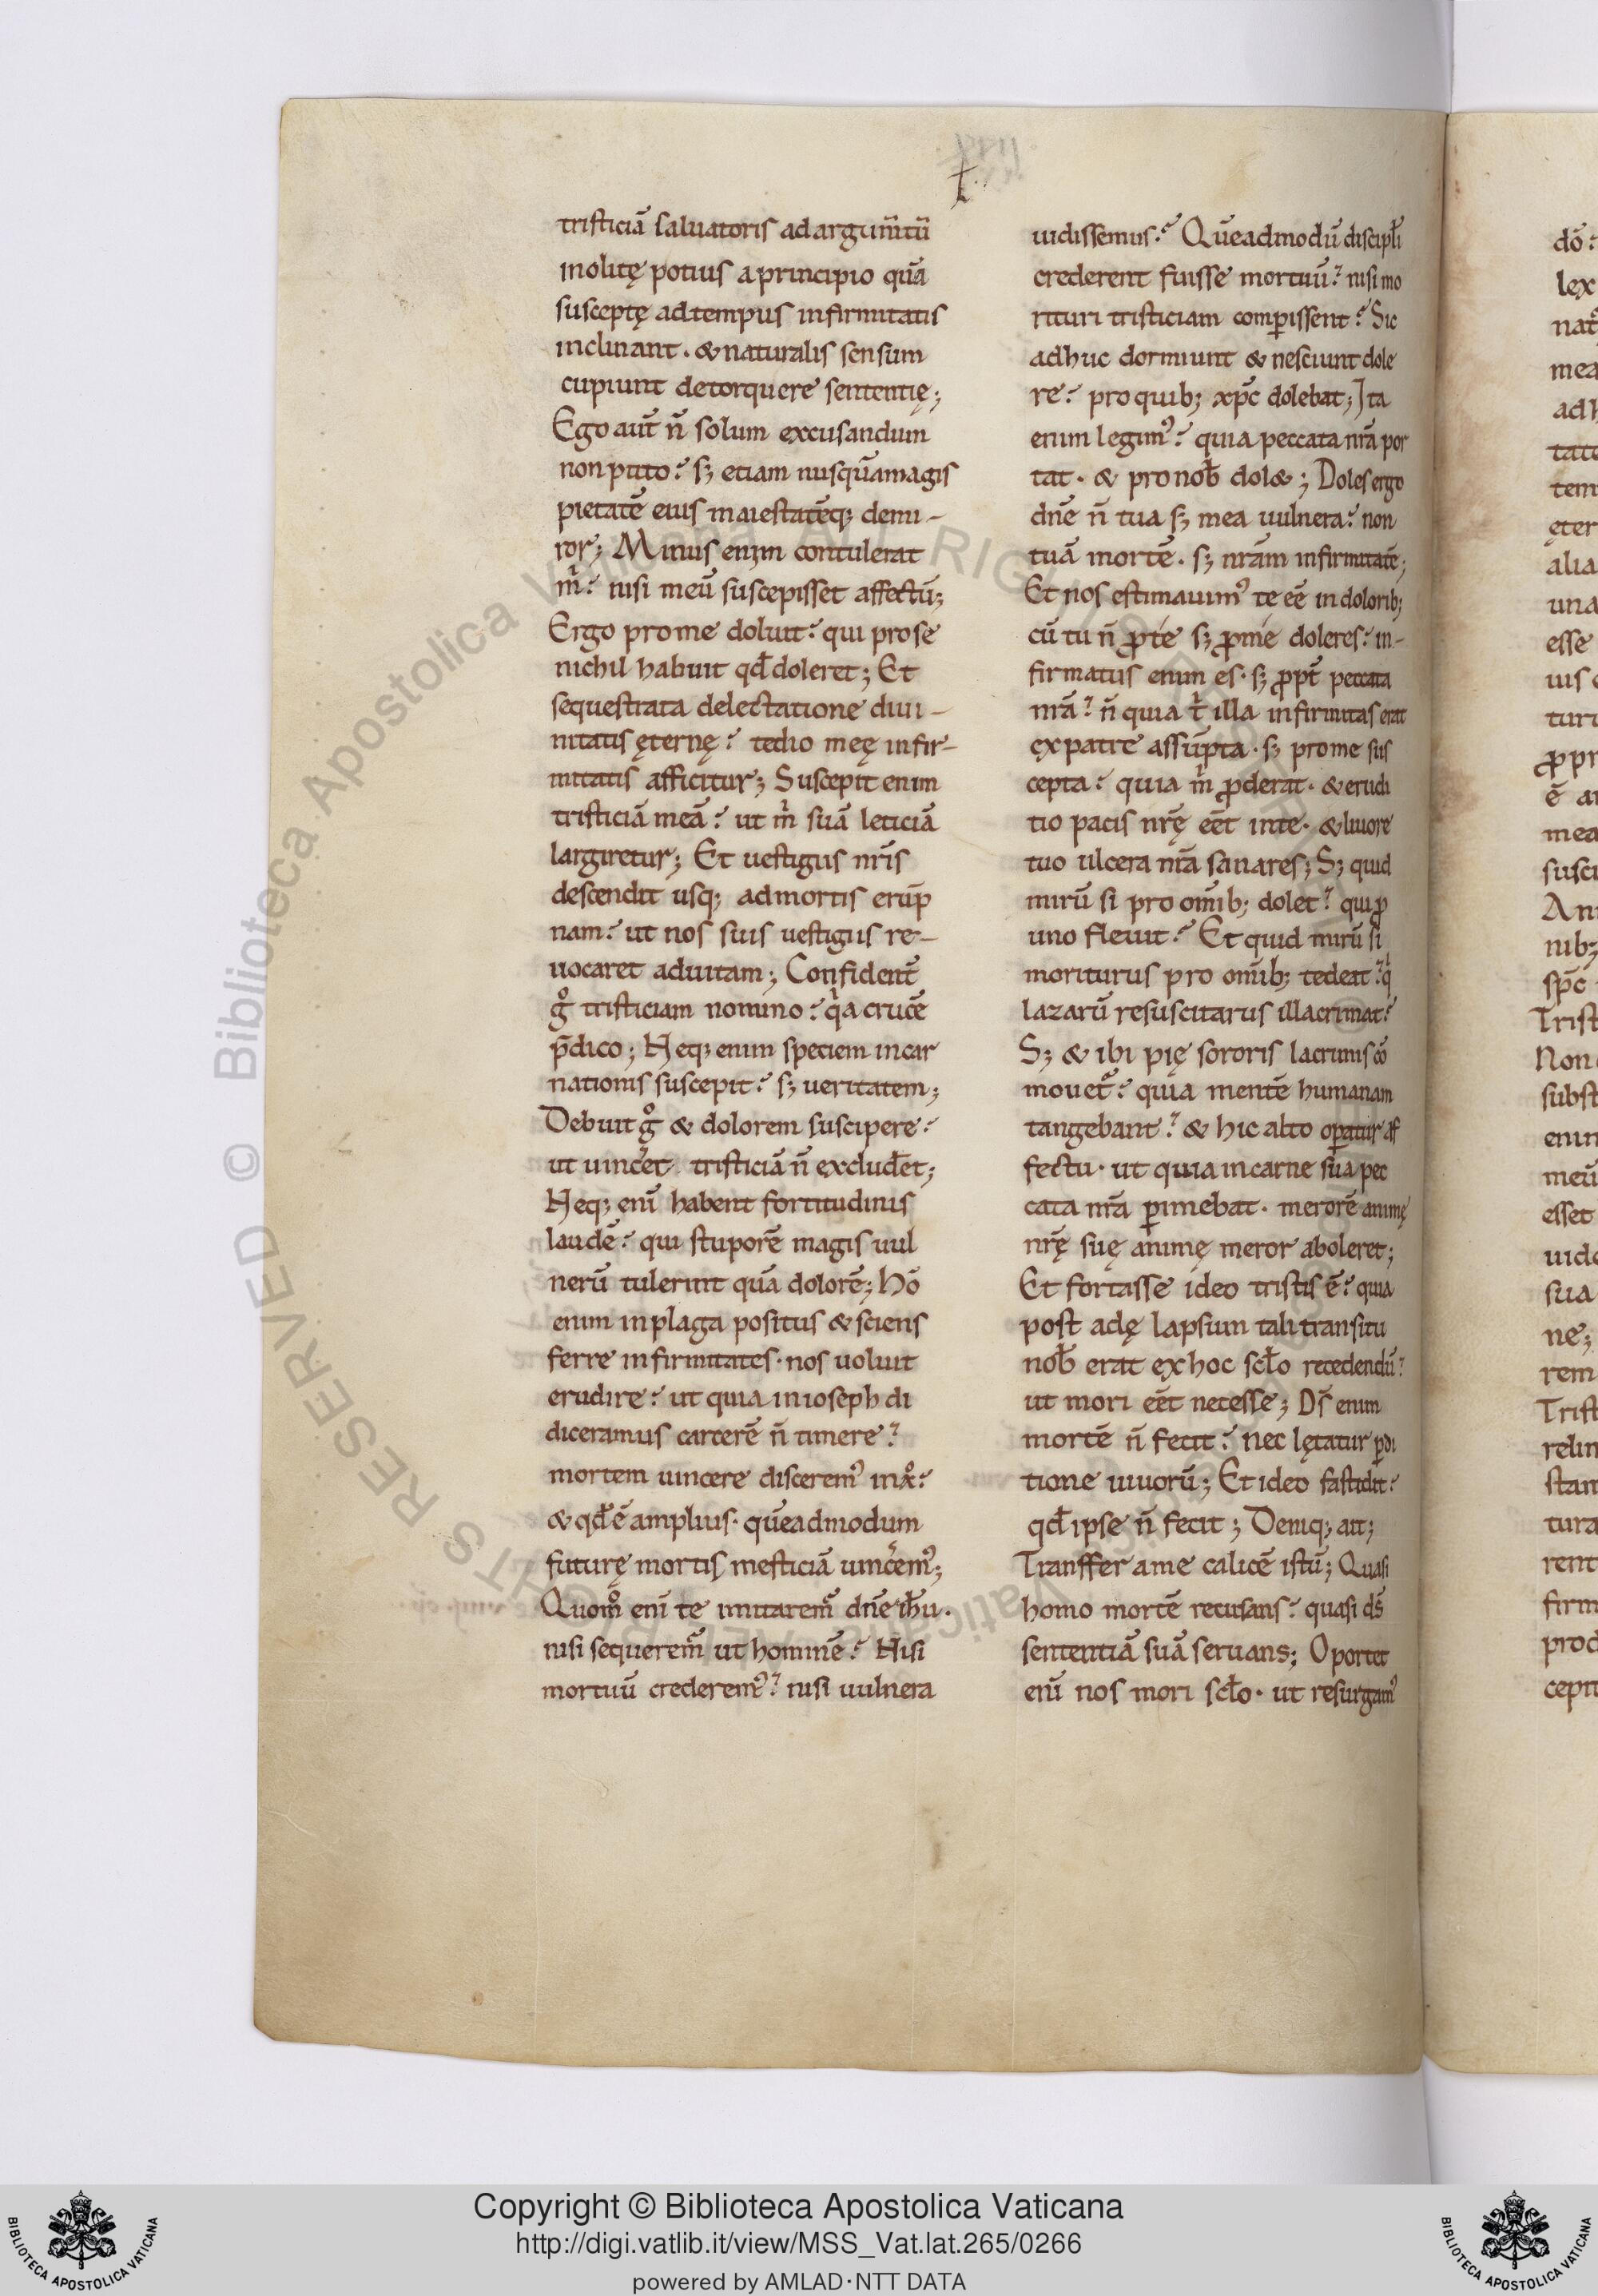 tristiciā saluatoris ad argum̄tū
inolitę potius a principio quā
susceptę ad tempus infirmitatis
inclinant · & naturalis sensum
cupiunt detorquere sententię;
Ego aut̄ n̄ solum excusandum
non puto? sȝ etiam nusquā magis
pietatē eius maiestatēq; demi-
ror; Minus enim contulerat
m̍? nisi meū suscepisset affectū;
Ergo pro me doluit? qui pro se
nichil habuit qđ doleret; Et
sequestrata delectatione diui-
nitatis ęternę? tedio meę infir-
mitatis afficitur; Suscepit enim
tristiciā meā? ut m̍ suā leticiā
largiretur; Et uestigiis nr̄is
descendit usq; ad mortis erūp
nam? ut nos suis uestigiis re-
uocaret ad uitam; Confident̄
gͦ tristiciam nomino? qͥa crucē
p̄dico; Neq; enim speciem incar
nationis suscepit? sȝ ueritatem;
Debuit gͦ & dolorem suscipere?
ut uinc̄et tristiciā n̄ excludēt;
Neq; enī habent fortitudinis
laudē? qui stuporē magis uul
nerū tulerint quā dolorē; Hō
enim in plaga positus & sciens
ferre infirmitates · nos uoluit
erudire? ut quia in ioseph di
diceramus carcerē n̄ timere?
mortem uincere discerem᾽ in xͦ?
& qđ ē amplius · quēadmodum
futurę mortis mesticiā uinc̄em᾽;
Quom̊ enī te imitarem̄ dn̄e ih̄u ·
nisi sequerem̄ ut hominē? Nisi
mortuū crederem᾽? nisi uulnera
uidissemus? Quēadmodū discipl̄i
crederent fuisse mortuū? nisi mo
rituri tristiciam comꝑissent? Sic
adhuc dormiunt & nesciunt dole
re? pro quib; xp̄c dolebat; Ita
enim legim᾽? quia peccata nr̄a por
tat · & pro nob̄ dol&; Doles ergo
dn̄e n̄ tua sȝ mea uulnera? non
tuā mortē · sȝ nr̄am infirmitatē;
Et nos estimauim᾽ te eē in dolorib;
cū tu n̄ ꝓ te sȝ ꝓ me doleres? in-
firmatus enim es · sȝ ꝓpt̄ peccata
nr̄a? n̄ quia t̍ illa infirmitas erat
ex patre assūpta · sȝ pro me sus
cepta? quia m̍ ꝓderat · & erudi
tio pacis nr̄ę eēt in te · & liuore
tuo ulcera nr̄a sanares; Sȝ quid
mirū si pro om̄ib; dolet? qui ꝓ
uno fleuit? Et quid mirū si
moriturus pro om̄ib; tedeat? qͥ
lazarū resuscitarus illacrimat?
Sȝ & ibi pię sororis lacrimis cō
mouet᷑? quia mentē humanam
tangebant? & hic alto oꝑatur af
fectu · ut quia in carne sua pec
cata nr̄a ꝑimebat · merorē animę
nr̄ę suę animę meror aboleret;
Et fortasse ideo tristis ē? quia
post adę lapsum tali transitu
nob̄ erat ex hoc scl̄o recedendū?
ut mori eēt necesse; Ds̄ enim
mortē n̄ fecit? nec lętatur ꝑdi
tione uiuorū; Et ideo fastidit?
qđ ipse n̄ fecit; Deniq; ait;
Transfer a me calicē istū; Quasi
homo mortē recusans? quasi ds̄
sententiā suā seruans; Oportet
enī nos mori scl̄o · ut resurgam᾽
dō?
lex
mea
tem
ęter
alia
una
esse
uis
ē
mea
nib;
sp̄c
Trist
Non
subst
meū
esset
sua
ne;
rem
Trist
stan
tura
rent
firm
prod
Copyright © Biblioteca Apostolica Vaticana
http://digi.vatlib.it/view/MSS_Vat.lat.265/0266
powered by AMLAD·NTT DATA
BIBLIOTECA APOSTOLICA VATICANA
BIBLIOTECA APOSTOLICA VATICANA